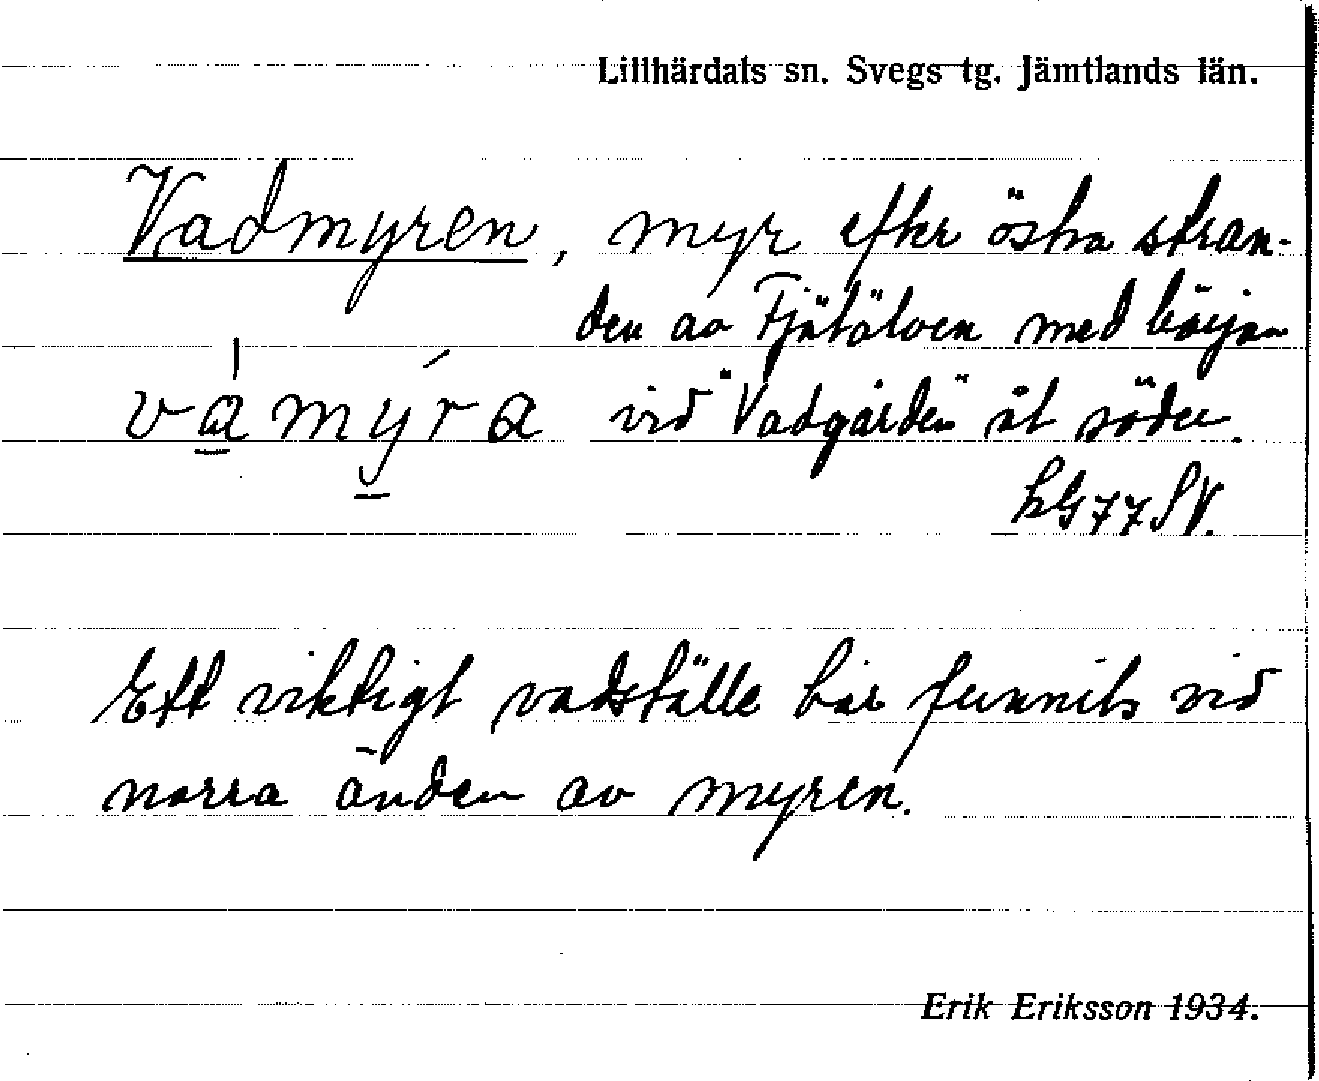 Lillhärdals sn. Svegs tg. Jämtlands län.
Vadmyren, myr efter östra stran-
den av Fjätälven med början
våmýra vid "Vadgården" åt söder.
hG77SV.
Ett viktigt vadställe har funnits vid
norra änden av myren.
Erik Eriksson 1934.